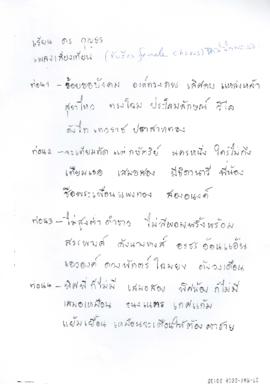 เรียน ดร
เพลงเสียงเทียน (female chorus)
ท่อน 1 - น้อยขอบังคม องค์ทรงเดช เลิศลบ แหล่งหล้า
สุดาไหว ทรงโฉม ประไพลักษณ์ วิไล
ดังไท เทวราช ปราสาททอง
ท่อน 2 - จะเทียมทัด แต่กษัตริย์ นครหนึ่ง ใครไม่ถึง
เทียมเธอ เสมอสอง มีธิดานารี พี่น้อง
ชื่อพระเพื่อนแพงทอง สองอนงค์
ท่อน 3 - ไม่สูงต่ำ ดำขาว พร้อม
สรรพางค์ ดังนางหงส์ อรชร อ้อนแอ้น
เอวองค์ ดวงพักตร์ โฉมยง ดังวงเดือน
ท่อน 4 - ก็ไม่มี เสมอสอง พี่น้อง ก็ไม่มี
เสมอเหมือน ขนงเนตร เกศแก้ม
แย้มเยื้อน เหมือนจะเตือนให้ต้อง ตาชาย